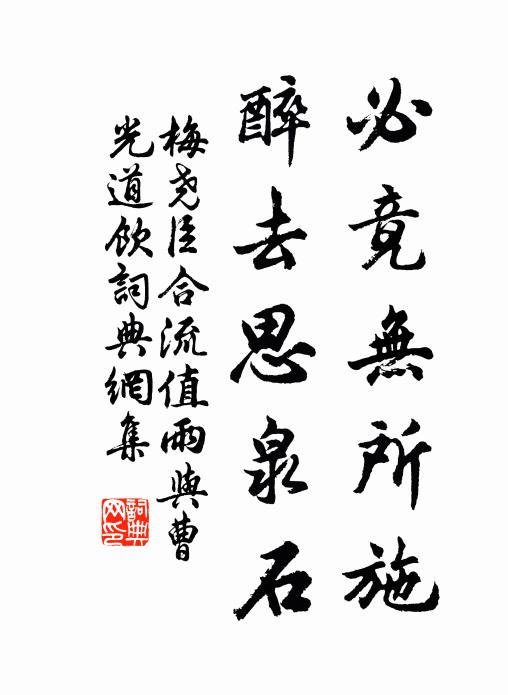 必竟無所施
醉去思泉石
梅尭臣合流值雨與曹
光道飲詞典網集
詞典网印